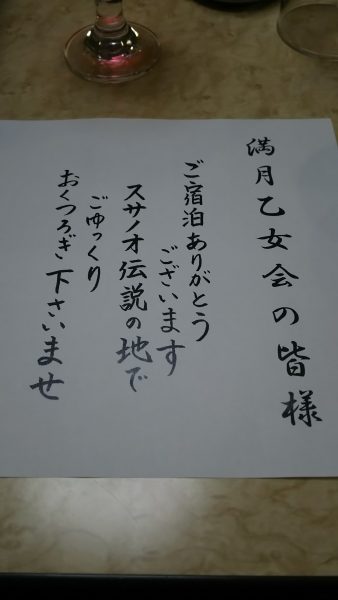 満月乙女会の皆様
ご宿泊ありがとう
ございます
スサノオ伝説の地で
ごゆっくり
おくつろぎ下さいませ